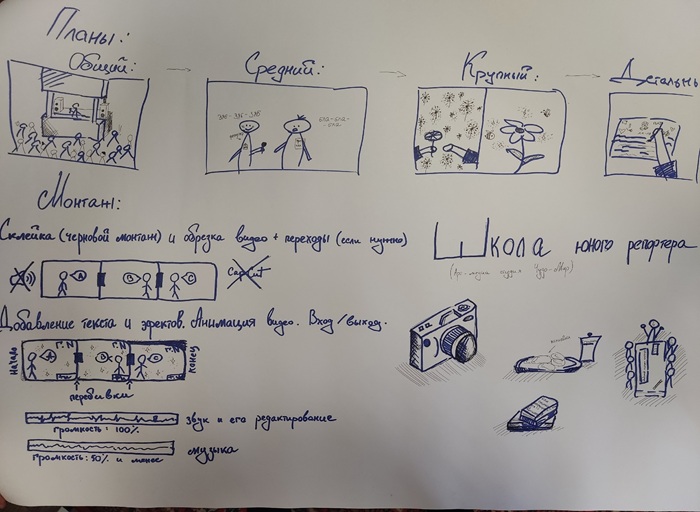 Планы:
Общий:
Средний:
Крупный:
Детальны
Монтаж:
Склейка (черновой монтаж) и обрезка видео + переходы (если нужно)
А
В
С
CapCut
Школа юного репортера
Добавление текста и эфектов. Анимация видео. Вход/выход.
Начало
конец
перебивки
звук и его редактирование
громкость: 100%
музыка
громкость: 50% и менее